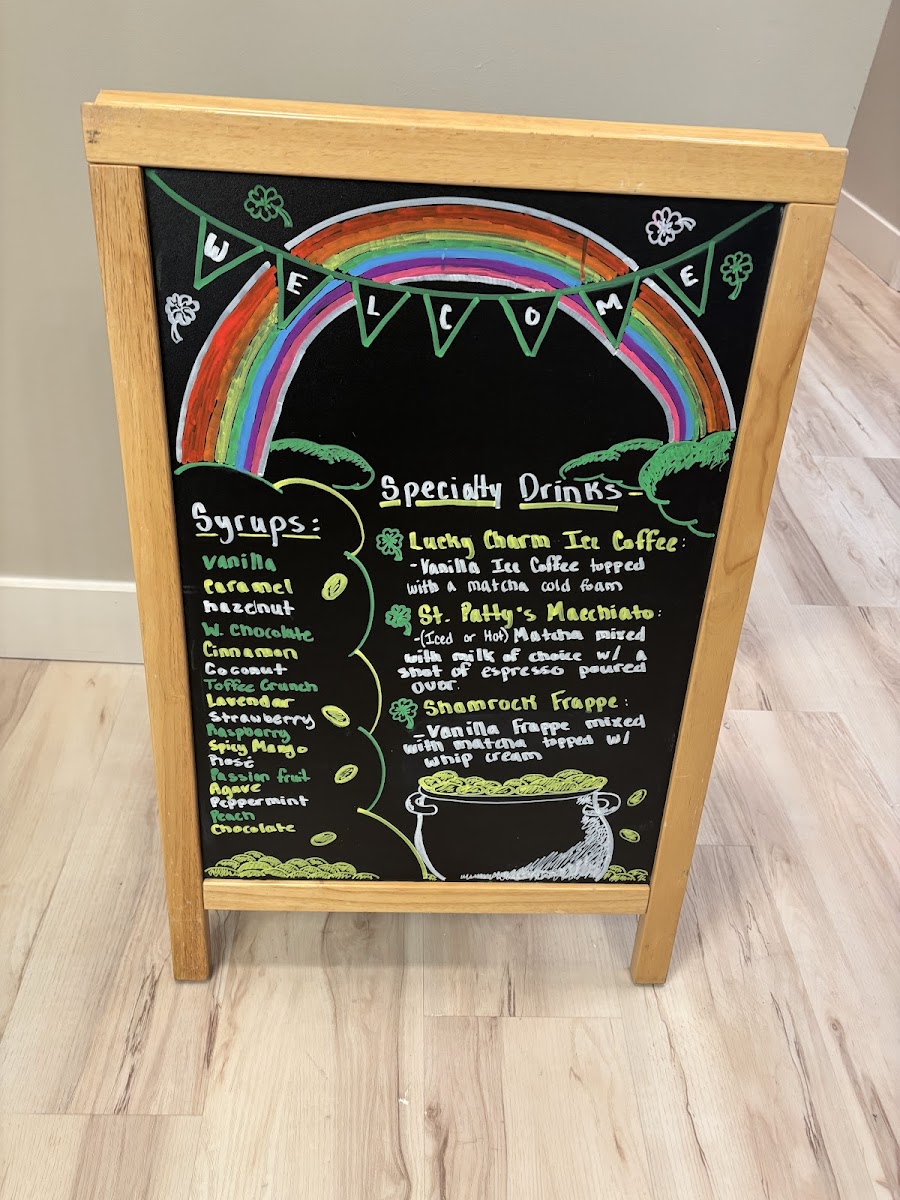 WELCOME
Syrups:
vanilla
caramel
hazelnut
W. Chocolate
Cinnamon
Coconut
Toffee Crunch
Lavendar
Strawberry
Raspberry
Spicy Mango
Rosé
Passion fruit
Agave
Peppermint
Peach
Chocolate
Specialty Drinks-
Lucky Charm Ice Coffee:
-Vanilla Ice Coffee topped
with a matcha cold foam
St. Patty's Macchiato:
-(Iced or Hot) Matcha mixed
with milk of choice w/ a
shot of espresso poured
over.
Shamrock Frappe:
-Vanilla Frappe mixed
with matcha topped w/
whip cream